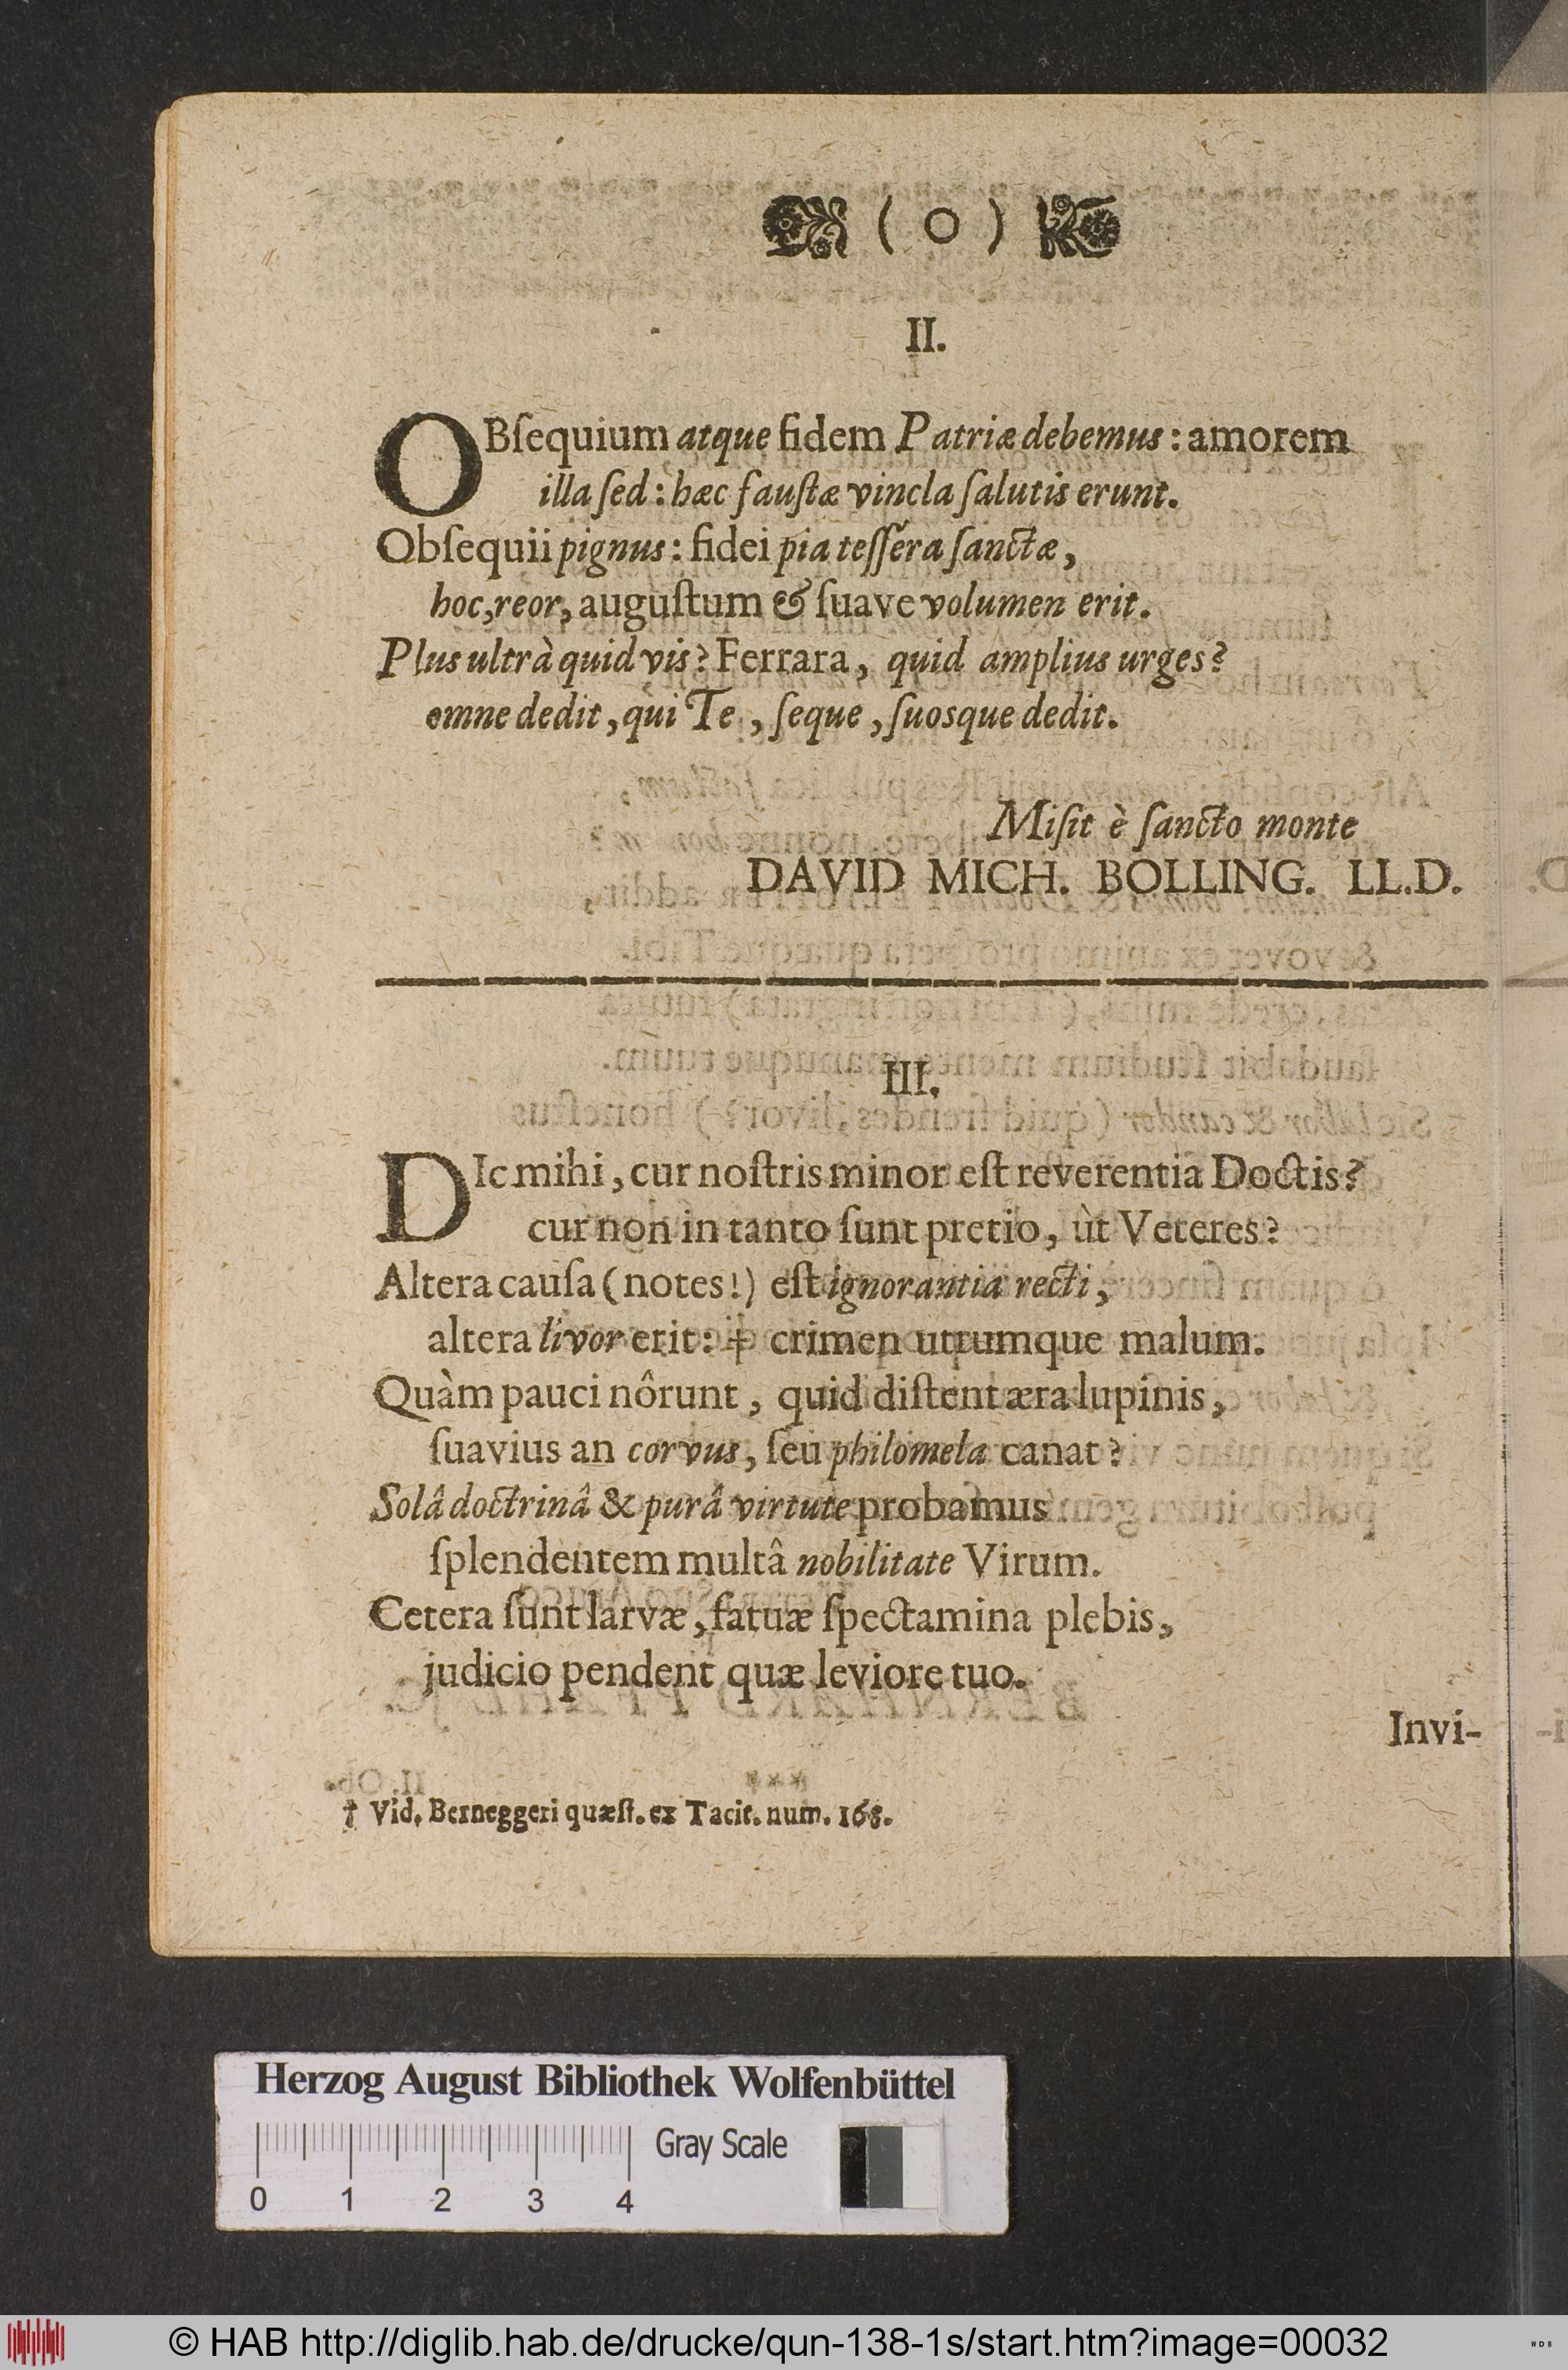 ( O )
II.
OBſequium atque fidem Patriæ debemus: amorem
illa ſed: hæc fauſtæ vincla ſalutis erunt.
Obſequii pignus: fidei pia teſſera ſanctæ,
hoc, reor, auguſtum & ſuave volumen erit.
Plus ultrà quid vis? Ferrara, quid amplius urges?
omne dedit, qui Te, ſeque, ſuosque dedit.
Miſit è ſancto monte
DAVID MICH. BOLLING. LL.D.
III.
DIc mihi, cur noſtris minor eſt reverentia Doctis?
cur non in tanto ſunt pretio, ùt Veteres?
Altera cauſa (notes!) eſt ignorantia recti,
altera livor erit: † crimen utrumque malum.
Quàm pauci nôrunt, quid diſtent æra lupinis,
ſuavius an corvus, ſeu philomela canat?
Solâ doctrinâ & purâ virtute probamus
ſplendentem multâ nobilitate Virum.
Cetera ſunt larvæ, fatuæ ſpectamina plebis,
judicio pendent quæ leviore tuo.
Invi-
† Vid. Berneggeri quæſt. ex Tacit. num. 168.
Herzog August Bibliothek Wolfenbüttel
Gray Scale
0 1 2 3 4
© HAB http://diglib.hab.de/drucke/qun-138-1s/start.htm?image=00032
WDB